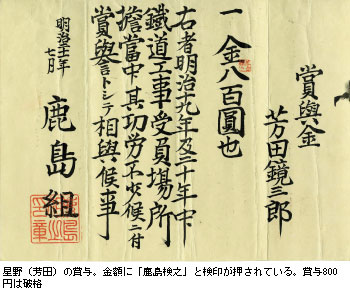 賞與金
芳田鏡三郎
一金八百圓也
右者明治十九年及二十年中
鐵道工事受員場所
擔當中其功労不尠候ニ付
賞與トシテ相與候事
明治二十一年
七月
鹿島組
星野（芳田）の賞与。金額に「鹿島検之」と検印が押されている。賞与800
円は破格